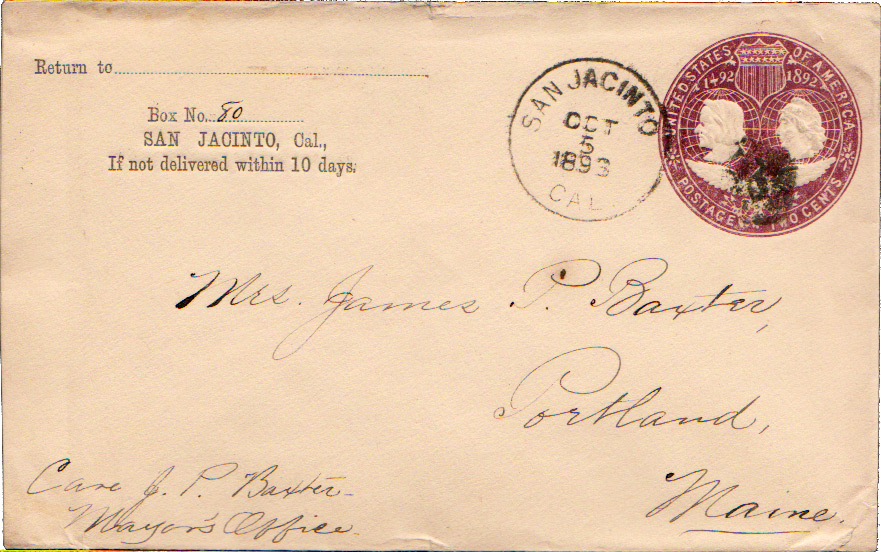 Return to
Box No. 80
SAN JACINTO, Cal.,
If not delivered within 10 days.
SAN JACINTO
OCT
5
1893
CAL
UNITED STATES OF AMERICA
1492 1892
POSTAGE TWO CENTS
Mrs. James P. Baxter,
Portland,
Maine.
Care J. P. Baxter
Mayor's Office.